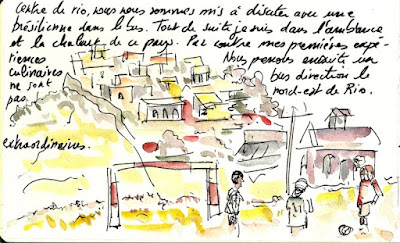 centre de rio, nous nous sommes mis à discuter avec une
brésilienne dans le bus. Tout de suite je suis dans l'ambiance
et la chaleur de ce pays. Par contre mes premières expé-
riences
culinaires
ne sont
pas
extraordinaires.
Nous prenons ensuite un
bus direction le
nord-est de Rio.